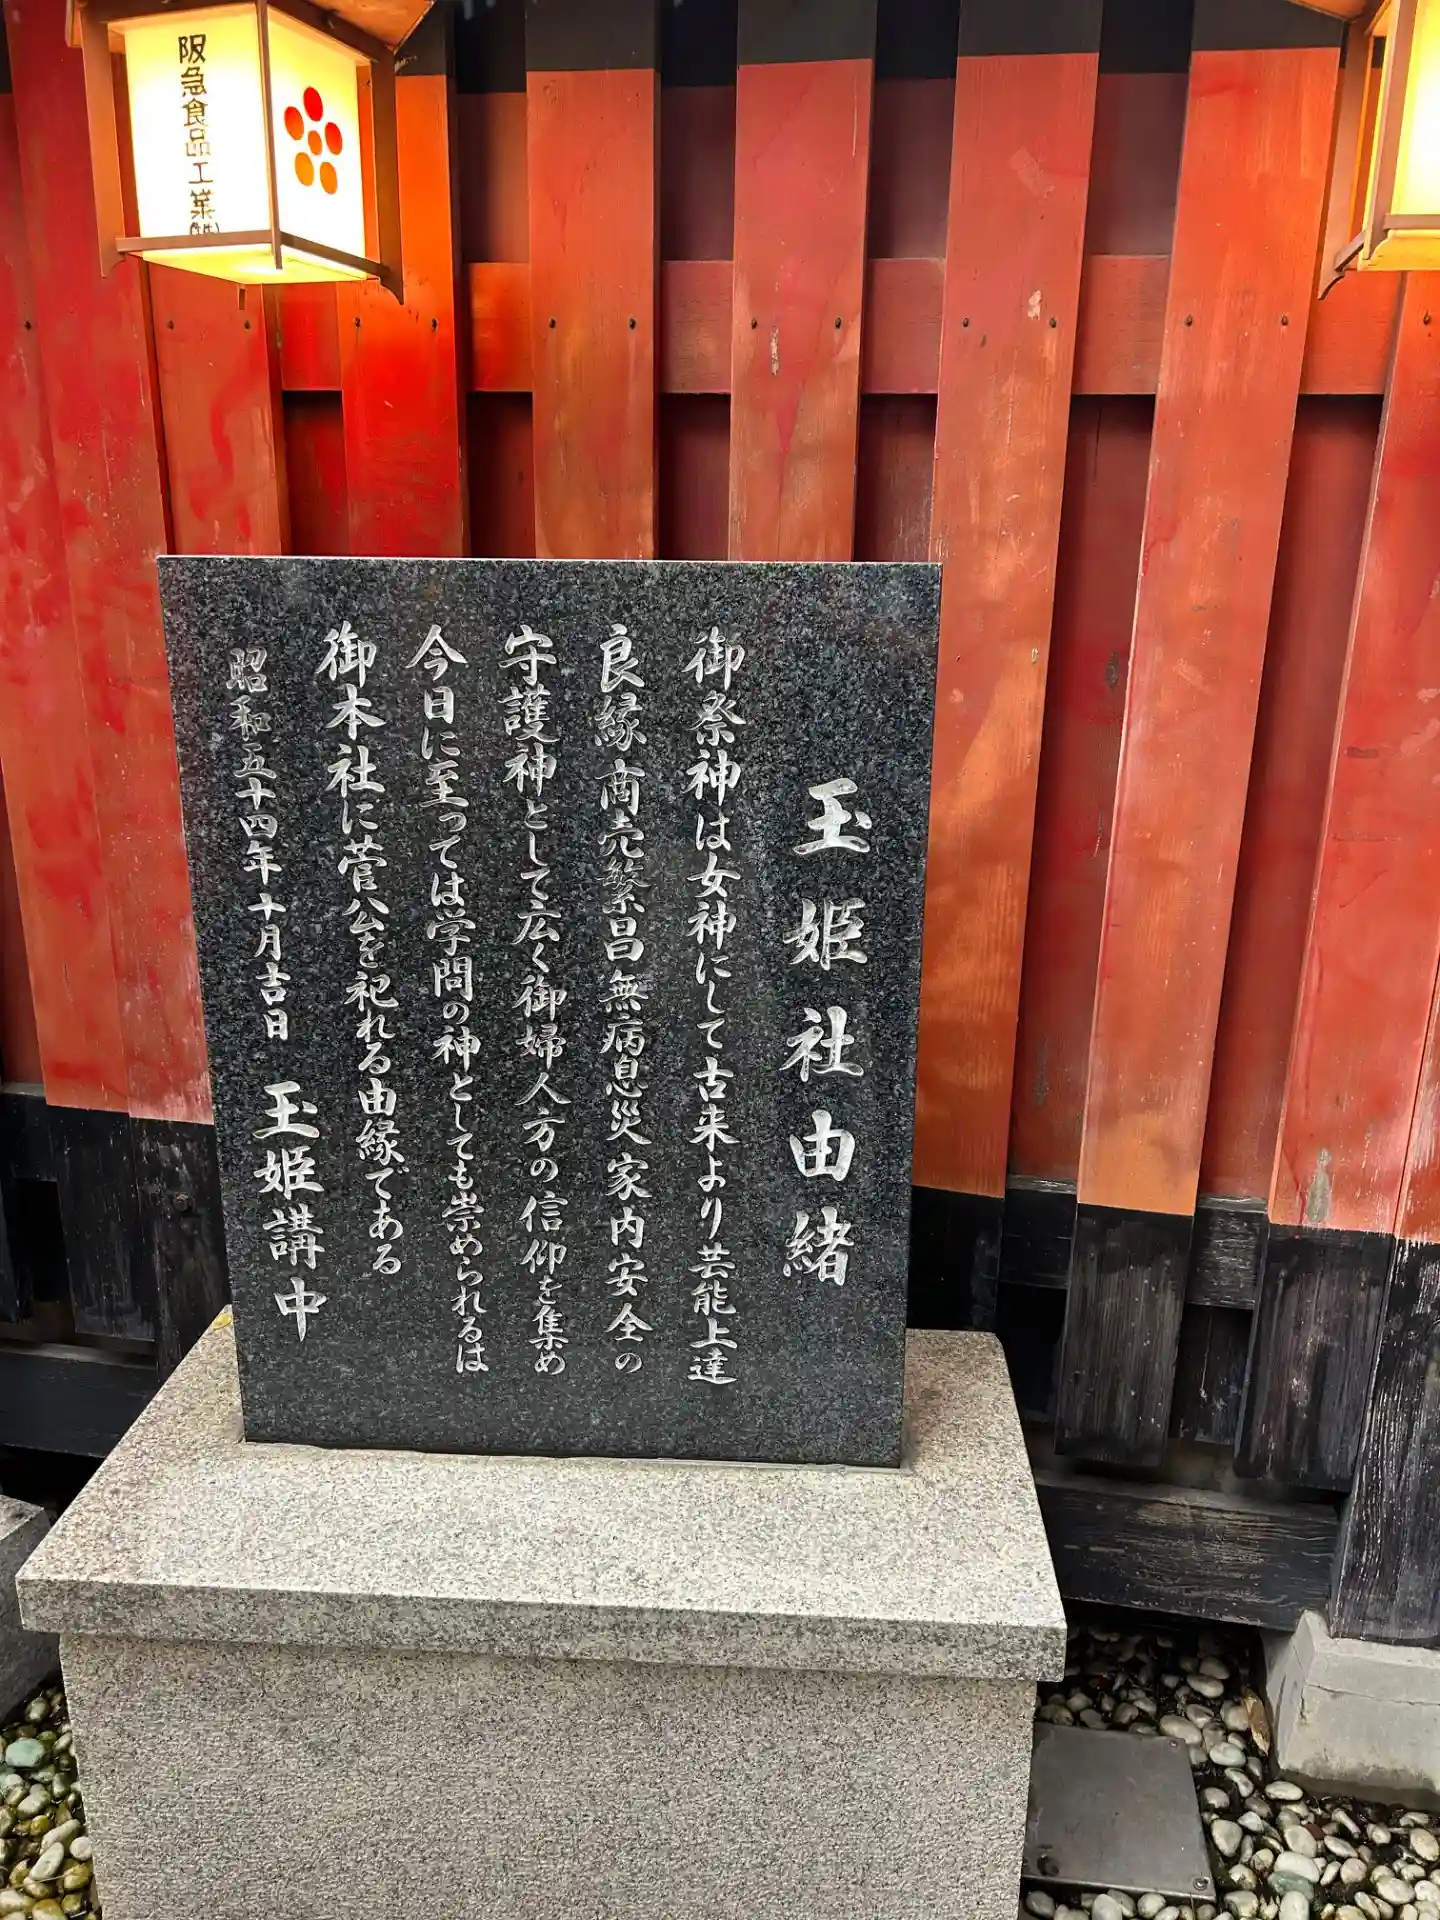 阪急食品工業㈱
玉姫社由緒
御祭神は女神にして古来より芸能上達
良縁商売繁昌無病息災家内安全の
守護神として広く御婦人方の信仰を集め
今日に至っては学問の神としても崇められるは
御本社に菅公を祀れる由縁である
昭和五十四年十月吉日 玉姫講中